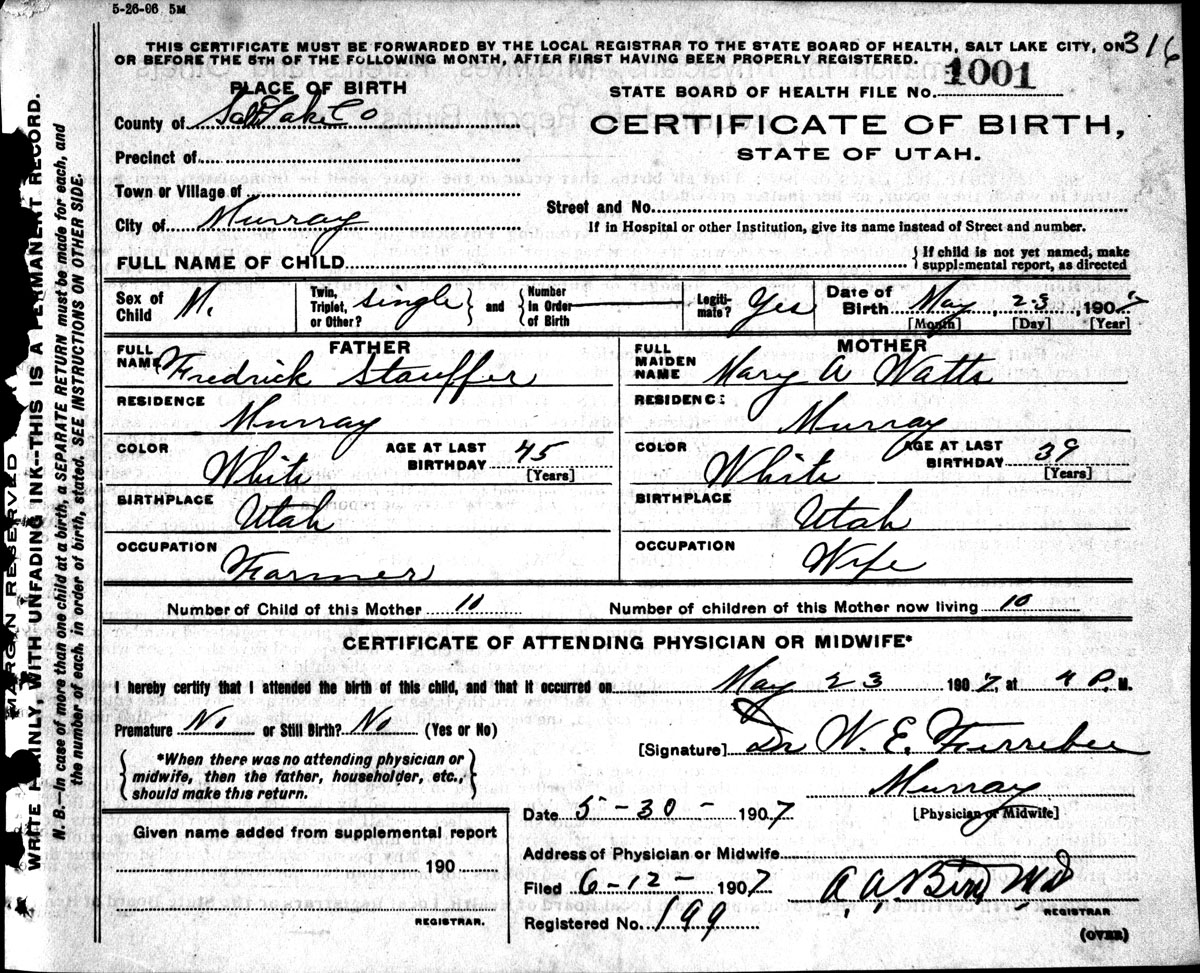 5-26-06 5M
THIS CERTIFICATE MUST BE FORWARDED BY THE LOCAL REGISTRAR TO THE STATE BOARD OF HEALTH, SALT LAKE CITY, ON
OR BEFORE THE 5TH OF THE FOLLOWING MONTH, AFTER FIRST HAVING BEEN PROPERLY REGISTERED.
316
PLACE OF BIRTH
STATE BOARD OF HEALTH FILE No. 1001
County of Salt Lake Co
CERTIFICATE OF BIRTH,
STATE OF UTAH.
Precinct of
Town or Village of
Street and No.
City of Murray
If in Hospital or other Institution, give its name instead of Street and number.
FULL NAME OF CHILD
{ If child is not yet named, make
supplemental report, as directed
Sex of Child M.
Twin, Triplet, or Other? single } and { Number in Order of Birth
Legitimate? Yes
Date of Birth May, 23, 1907
[Month] [Day] [Year]
FATHER
FULL NAME Fredrick Stauffer
RESIDENCE Murray
COLOR White
AGE AT LAST BIRTHDAY 45 [Years]
BIRTHPLACE Utah
OCCUPATION Farmer
MOTHER
FULL MAIDEN NAME Mary A Watts
RESIDENCE Murray
COLOR White
AGE AT LAST BIRTHDAY 39 [Years]
BIRTHPLACE Utah
OCCUPATION Wife
Number of Child of this Mother 10
Number of children of this Mother now living 10
CERTIFICATE OF ATTENDING PHYSICIAN OR MIDWIFE*
I hereby certify that I attended the birth of this child, and that it occurred on May 23 1907, at 4 P. M.
Premature No or Still Birth? No (Yes or No)
[Signature] Dr W. E. Ferrebee
{ *When there was no attending physician or
midwife, then the father, householder, etc.,
should make this return. }
Murray
[Physician or Midwife]
Date 5-30-1907
Given name added from supplemental report
190
REGISTRAR.
Address of Physician or Midwife
Filed 6-12-1907
A. A. Bird MD
REGISTRAR
Registered No. 199
(OVER)
MARGAN RESERVED
WRITE PLAINLY, WITH UNFADING INK--THIS IS A PERMANENT RECORD.
N. B.—In case of more than one child at a birth, a SEPARATE RETURN must be made for each, and
the number of each, in order of birth, stated. SEE INSTRUCTIONS ON OTHER SIDE.